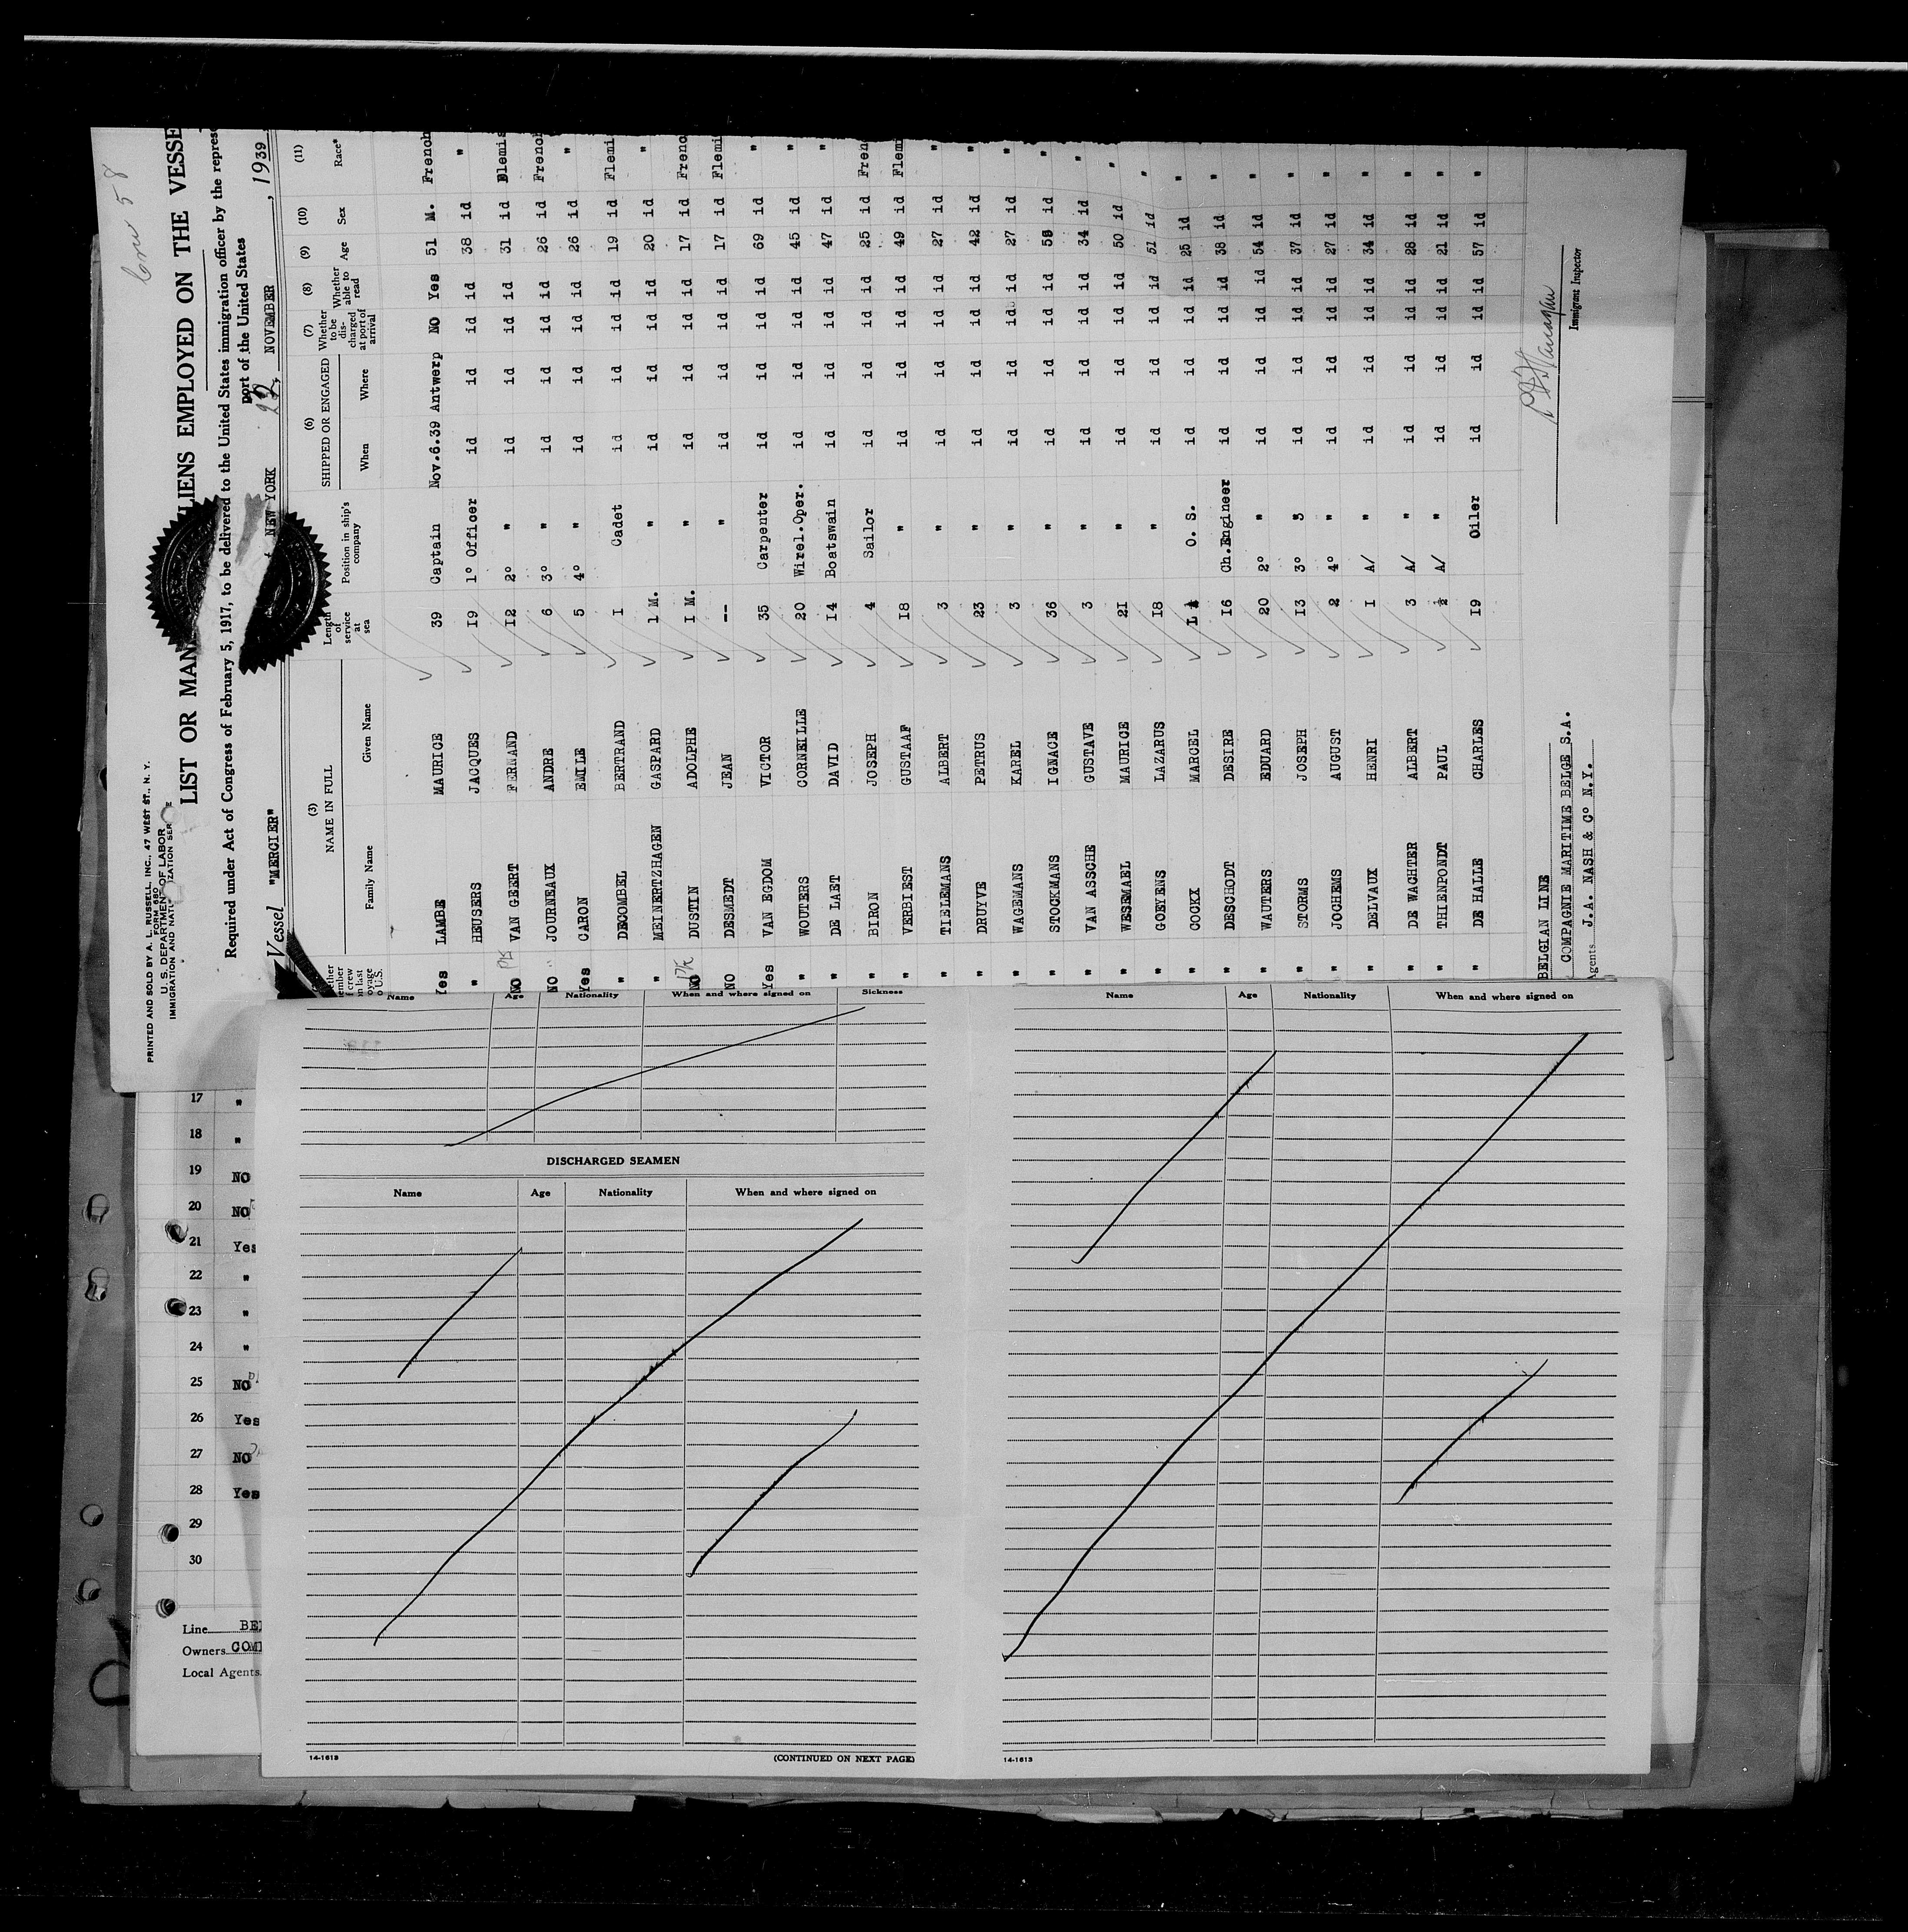 Crew 58
PRINTED AND SOLD BY A. L. RUSSELL, INC., 47 WEST ST., N. Y.
FORM 680
U. S. DEPARTMENT OF LABOR
IMMIGRATION AND
LIST OR LIENS EMPLOYED ON THE VESSE
Required under Act of Congress of February 5, 1917, to be delivered to the United States immigration officer by the repres
port of the United States
Vessel "MERCIER" NEW YORK 22, NOVEMBER, 1939
(3) (6) (7) (8) (9) (10) (11)
NAME IN FULL Length of service at sea Position in ship's company SHIPPED OR ENGAGED Whether to be discharged at port of arrival Whether able to read Age Sex Race*
Family Name Given Name When Where
Yes LAMBE MAURICE 39 Captain Nov.6.39 Antwerp NO Yes 51 M. French
" HEUSERS JACQUES 19 1° Officer id id id id 38 id "
NO VAN GEERT FERNAND 12 2° " id id id id 31 id Flemis
NO JOURNEAUX ANDRE 6 3° " id id id id 26 id French
Yes CARON EMILE 5 4° " id id id id 26 id "
" DECOMBEL BERTRAND I Cadet id id id id 19 id Flemi
" MEINERTZHAGEN GASPARD 1 M. " id id id id 20 id "
NO DUSTIN ADOLPHE I M. " id id id id 17 id Frenc
NO DESMEDT JEAN -- " id id id id 17 id Flemi
Yes VAN EGDOM VICTOR 35 Carpenter id id id id 69 id "
" WOUTERS CORNEILLE 20 Wirel.Oper. id id id id 45 id "
" DE LAET DAVID I4 Boatswain id id id id 47 id "
" BIRON JOSEPH 4 Sailor id id id id 25 id Fren
" VERBIEST GUSTAAF I8 " id id id id 49 id Flem
" TIELEMANS ALBERT 3 " id id id id 27 id "
" DRUYVE PETRUS 23 " id id id id 42 id "
" WAGEMANS KAREL 3 " id id id id 27 id "
" STOCKMANS IGNACE 36 " id id id id id "
" VAN ASSCHE GUSTAVE 3 " id id id id 34 id "
" WESEMAEL MAURICE 21 " id id id id 50 id "
" GOEYENS LAZARUS I8 " id id id id 51 id "
" COCKX MARCEL O. S. id id id id 25 id "
" DESCHODT DESIRE I6 Ch.Engineer id id id id 38 id "
" WAUTERS EDUARD 20 2° " id id id id 54 id "
" STORMS JOSEPH I3 3° id id id id 37 id "
" JOCHEMS AUGUST 2 4° " id id id id 27 id "
" DELVAUX HENRI I A/ " id id id id 34 id "
" DE WACHTER ALBERT 3 A/ " id id id id 28 id "
" THIENPONDT PAUL ½ A/ " id id id id 21 id "
" DE HALLE CHARLES I9 Oiler id id id id 57 id "
BELGIAN LINE
COMPAGNIE MARITIME BELGE S.A.
Agents J.A. NASH & C° N.Y.
Immigrant Inspector
Name Age Nationality When and where signed on Sickness
DISCHARGED SEAMEN
Name Age Nationality When and where signed on
14-1613 (CONTINUED ON NEXT PAGE)
Name Age Nationality When and where signed on
14-1613
17 "
18 "
19 NO
20 NO
21 Yes
22 "
23 "
24 "
25 NO
26 Yes
27 NO
28 Yes
29
30
Line BE
Owners COM
Local Agents